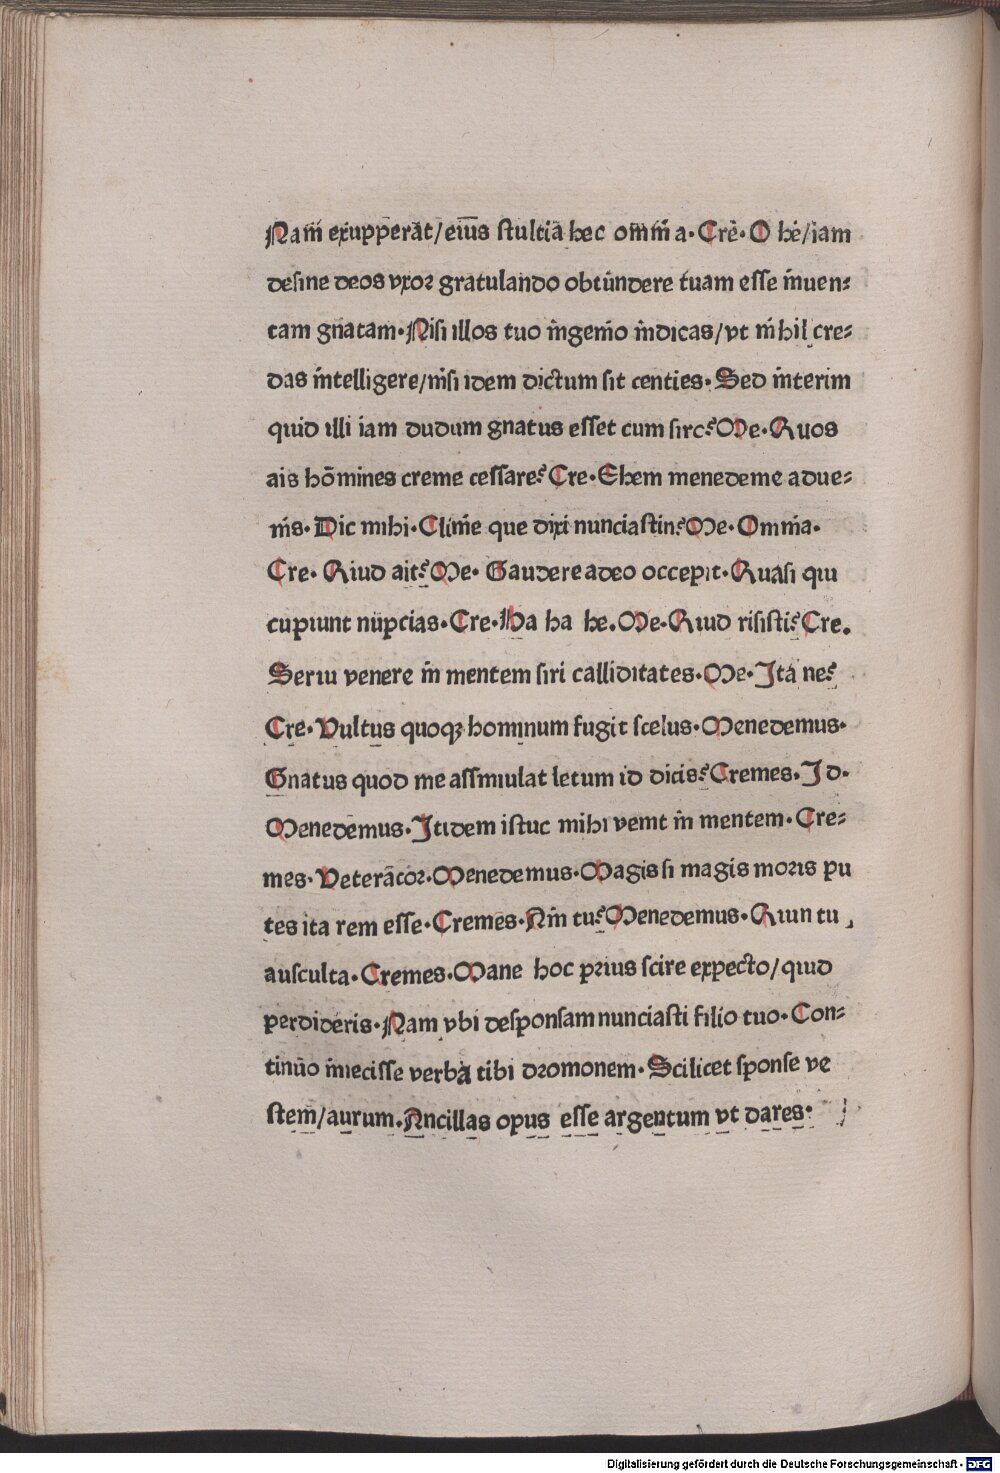 Nam̄ exupperāt/eiūs stultiā hec om̄īa·Cre·O he/iam
desine deos vxoꝛ gratulando obtūndere tuam esse inuen⸗
tam gnatam·Nisi illos tuo ingenio indicas/vt nihil cre⸗
das intelligere/nisi idem dictum sit centies·Sed interim
quid illi iam dudum gnatus esset cum siro?Me·Quos
ais hōmines creme cessare?Cre·Ehem menedeme adue⸗
nis·Dic mihi·Clinie que dixi nunciastin?Me·Omnia·
Cre·Quid ait?Me·Gaudere adeo occepit·Quasi qui
cupiunt nupcias·Cre·Ha ha he.Me·Quid risisti?Cre.
Serui venere in mentem siri calliditates·Me·Ita ne?
Cre·Vultus quoqꝫ hominum fugit scelus·Menedemus·
Gnatus quod me assimulat letum id dicis?Cremes·Id·
Menedemus·Itidem istuc mihi venit in mentem·Cre⸗
mes·Veterātoꝛ·Menedemus·Magis si magis noꝛis pu
tes ita rem esse·Cremes·Ain tu?Menedemus·Quin tu
ausculta·Cremes·Mane hoc pꝛius scire expecto/quid
perdideris·Nam vbi desponsam nunciasti filio tuo·Con⸗
tinūo iniecisse verba tibi dꝛomonem·Scilicet sponse ve
stem/aurum.Ancillas opus esse argentum vt dares·
Digitalisierung gefördert durch die Deutsche Forschungsgemeinschaft - DFG